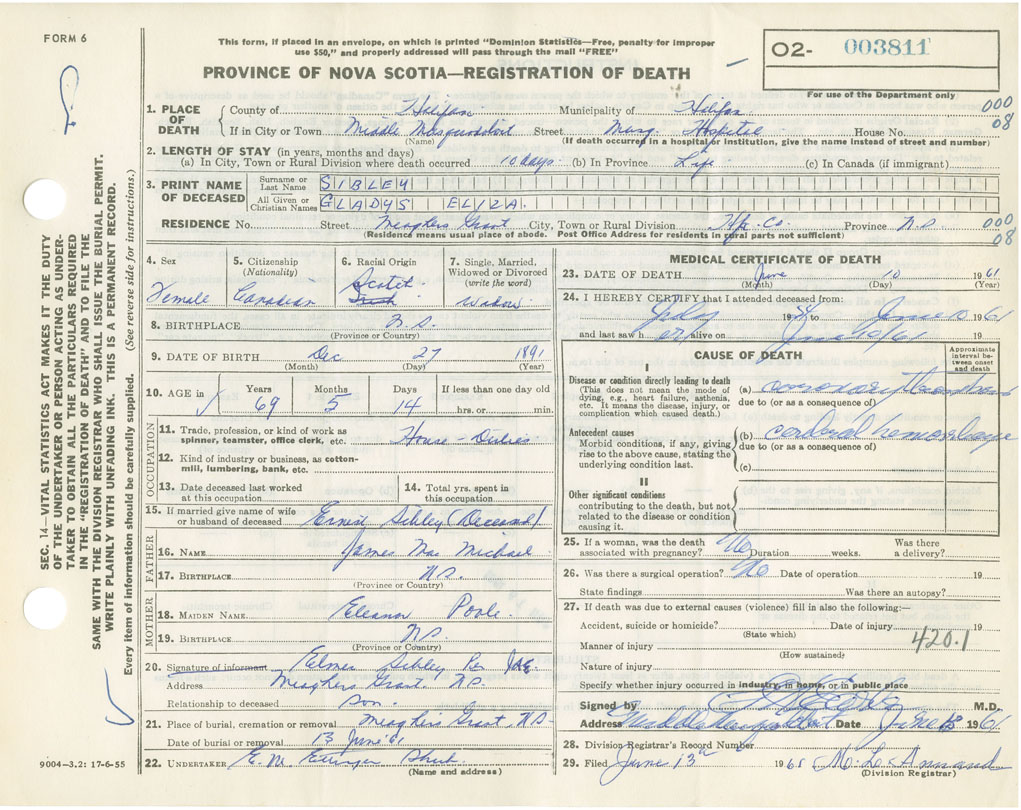 FORM 6
This form, if placed in an envelope, on which is printed "Dominion Statistics—Free, penalty for improper
use $50," and properly addressed will pass through the mail "FREE"
O2- 003811
PROVINCE OF NOVA SCOTIA—REGISTRATION OF DEATH
For use of the Department only
1. PLACE OF DEATH
County of Halifax Municipality of Halifax 000
08
If in City or Town Middle Musquodoboit Street Musq. Hospital House No.
(Name) (If death occurred in a hospital or institution, give the name instead of street and number)
2. LENGTH OF STAY (in years, months and days)
(a) In City, Town or Rural Division where death occurred 10 days (b) In Province Life (c) In Canada (if immigrant)
3. PRINT NAME OF DECEASED
Surname or Last Name SIBLEY
All Given or Christian Names GLADYS ELIZA.
RESIDENCE No. Street Meaghers Grant City, Town or Rural Division Hfx. Co. Province N.S 000
08
(Residence means usual place of abode. Post Office Address for residents in rural parts not sufficient)
4. Sex Female
5. Citizenship (Nationality) Canadian
6. Racial Origin Scotch
7. Single, Married, Widowed or Divorced (write the word) Widow
8. BIRTHPLACE N.S.
(Province or Country)
9. DATE OF BIRTH Dec 27 1891
(Month) (Day) (Year)
10. AGE in Years 69 Months 5 Days 14 If less than one day old hrs. or min.
OCCUPATION
11. Trade, profession, or kind of work as spinner, teamster, office clerk, etc. House-Duties
12. Kind of industry or business, as cotton-mill, lumbering, bank, etc.
13. Date deceased last worked at this occupation
14. Total yrs. spent in this occupation
15. If married give name of wife or husband of deceased Ernest Sibley (Deceased)
FATHER
16. NAME James Mac Michael
17. BIRTHPLACE N.S.
(Province or Country)
MOTHER
18. MAIDEN NAME Eleanor Poole
19. BIRTHPLACE NS
(Province or Country)
20. Signature of informant Elmer Sibley Per
Address Meaghers Grant, N.S.
Relationship to deceased Son.
21. Place of burial, cremation or removal Meaghers Grant, NS
Date of burial or removal 13 June '61
22. UNDERTAKER E. M. Ettinger
(Name and address)
MEDICAL CERTIFICATE OF DEATH
23. DATE OF DEATH June 10 1961
(Month) (Day) (Year)
24. I HEREBY CERTIFY that I attended deceased from:
19 to June 10 1961
and last saw her alive on June 10/61 19
CAUSE OF DEATH
Approximate interval between onset and death
I
Disease or condition directly leading to death
(This does not mean the mode of
dying, e.g., heart failure, asthenia,
etc. It means the disease, injury, or
complication which caused death.)
(a) coronary thrombosis
due to (or as a consequence of)
Antecedent causes
Morbid conditions, if any, giving
rise to the above cause, stating the
underlying condition last.
(b) cerebral hemorrhage
due to (or as a consequence of)
(c)
II
Other significant conditions
contributing to the death, but not
related to the disease or condition
causing it.
25. If a woman, was the death associated with pregnancy? No Duration weeks. Was there a delivery?
26. Was there a surgical operation? No Date of operation 19
State findings Was there an autopsy?
27. If death was due to external causes (violence) fill in also the following:—
Accident, suicide or homicide? Date of injury 19
(State which)
Manner of injury 420.1
(How sustained?
Nature of injury
Specify whether injury occurred in industry, in home, or in public place
Signed by M.D.
Address Middle Musquodoboit Date June 13 1961
28. Division Registrar's Record Number
29. Filed June 13th 1961
(Division Registrar)
SEC. 14—VITAL STATISTICS ACT MAKES IT THE DUTY
OF THE UNDERTAKER OR PERSON ACTING AS UNDER-
TAKER TO OBTAIN ALL THE PARTICULARS REQUIRED
IN THE "REGISTRATION OF DEATH" AND TO FILE THE
SAME WITH THE DIVISION REGISTRAR WHO SHALL ISSUE THE BURIAL PERMIT.
WRITE PLAINLY WITH UNFADING INK. THIS IS A PERMANENT RECORD.
Every item of information should be carefully supplied. (See reverse side for instructions.)
9004—3.2: 17-6-55